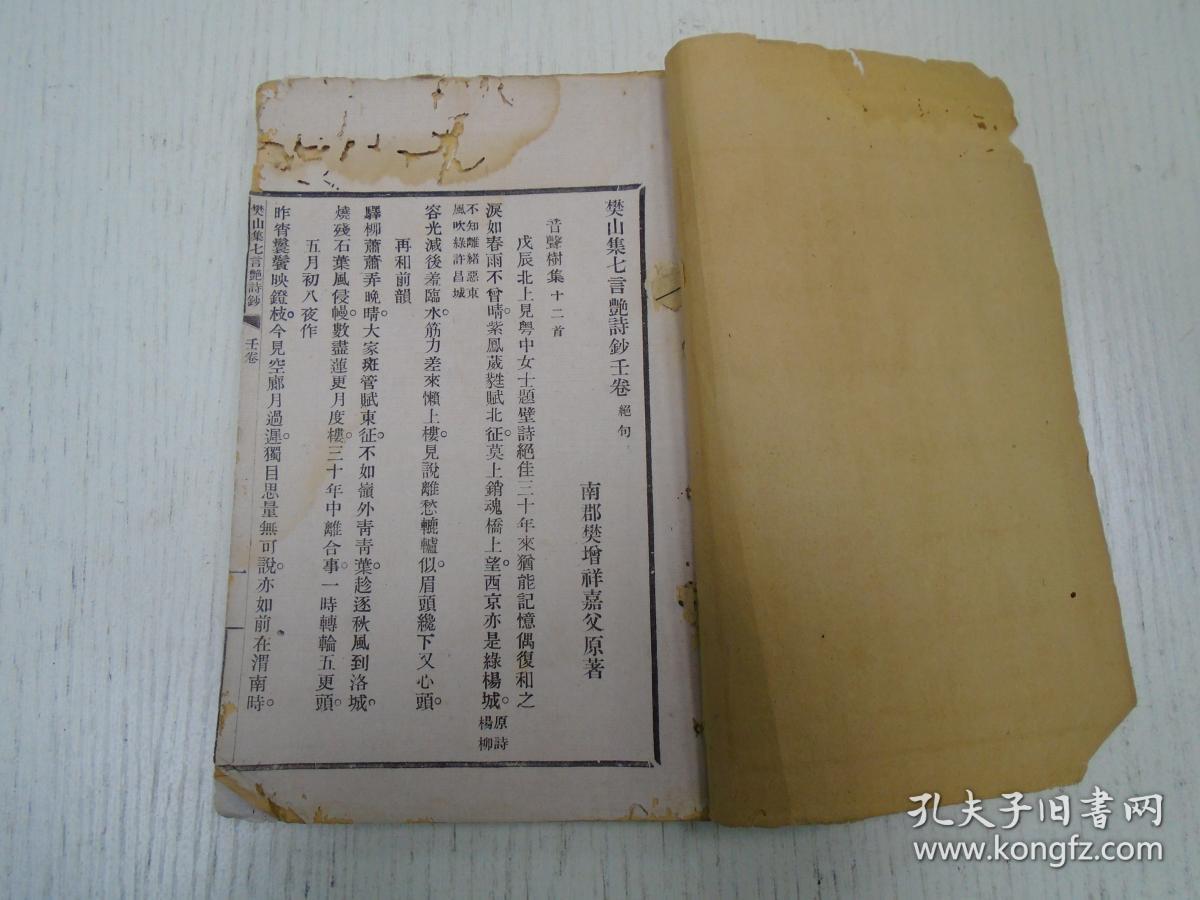 樊山集七言艷詩鈔壬卷 絕句
南郡樊增祥嘉父原著
音聲樹集 十二首
戊辰北上見粵中女士題壁詩絕佳三十年來猶能記憶偶復和之
淚如春雨不曾晴。紫鳳葳蕤賦北征。莫上銷魂橋上望。西京亦是綠楊城。原詩楊柳
不知離緒惡東風吹綠許昌城
容光減後羞臨水。筋力差來懶上樓。見說離愁轆轤似。眉頭纔下又心頭。
再和前韻
驛柳蕭蕭弄晚晴。大家斑管賦東征。不如嶺外靑靑葉。趁逐秋風到洛城。
燒殘石葉風侵幔。數盡蓮更月度樓。三十年中離合事。一時轉輪五更頭。
五月初八夜作
昨宵鬟鬢映鐙枝。今見空廊月過遲。獨自思量無可說。亦如前在渭南時。
樊山集七言艷詩鈔 壬卷 一
孔夫子旧书网
www.kongfz.com